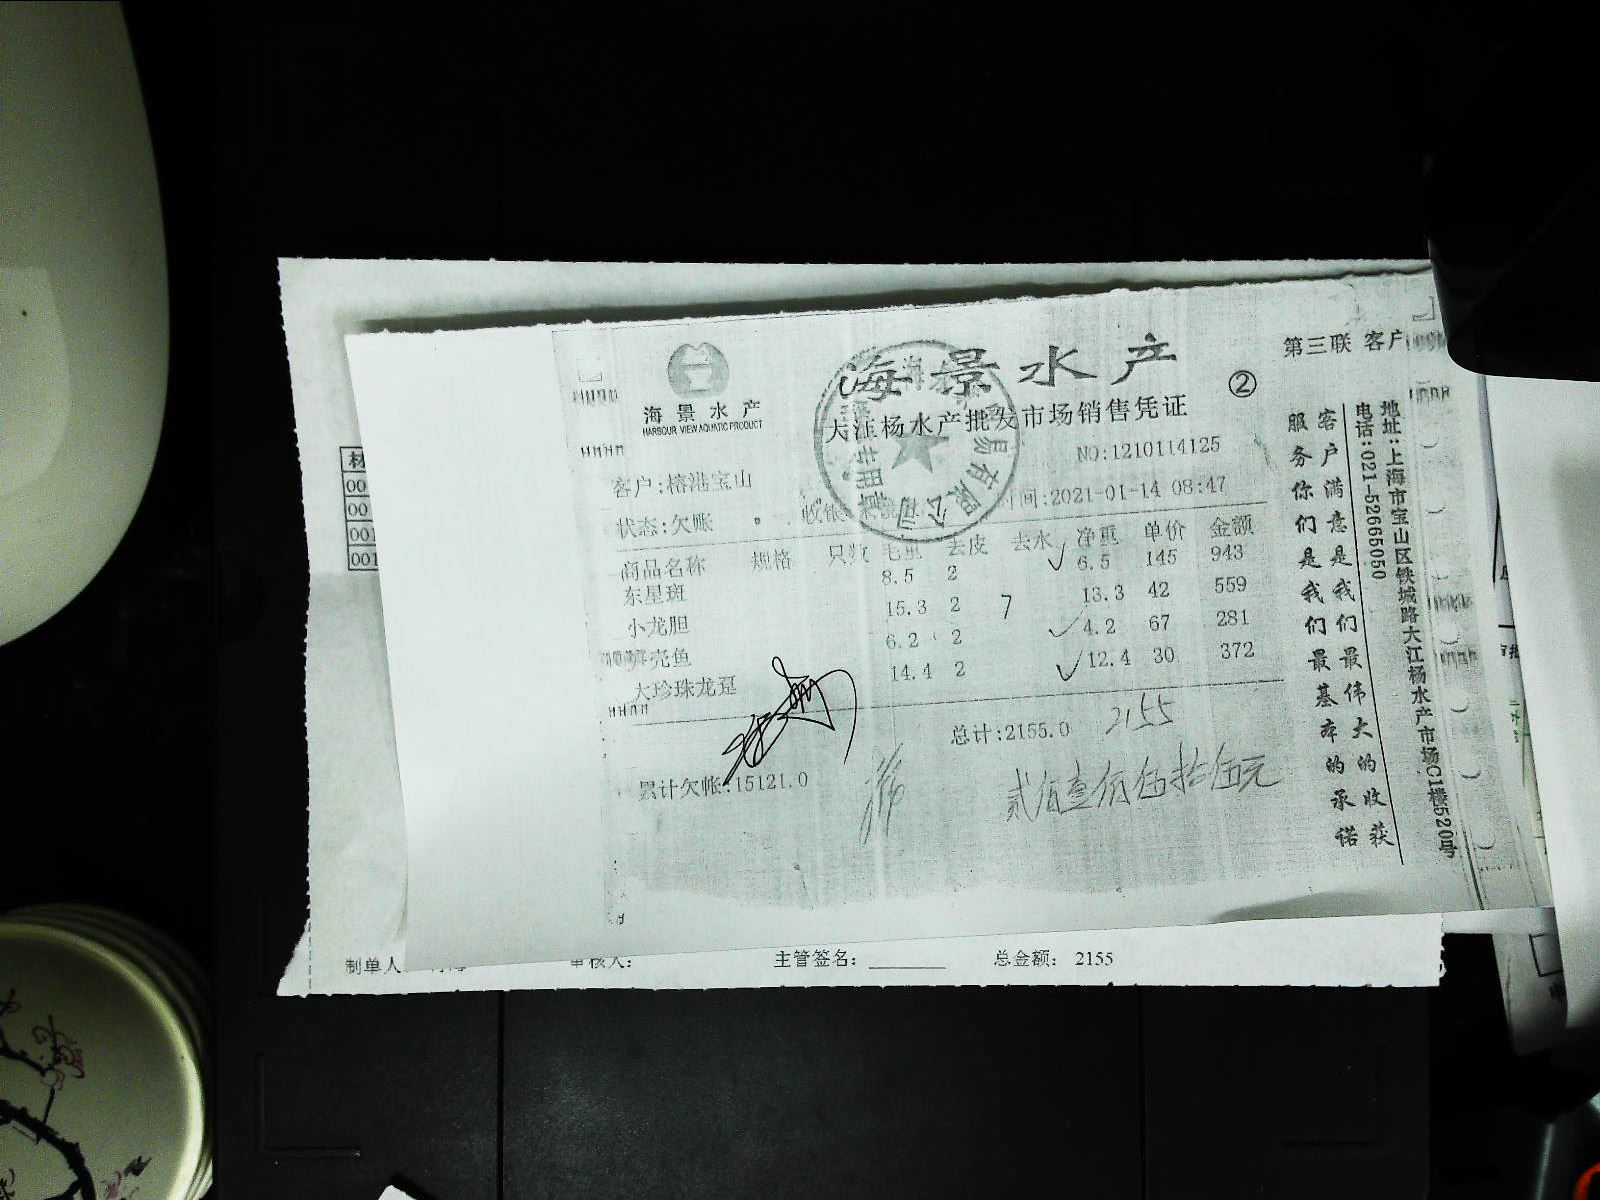 海景水产
HARBOUR VIEW AQUATIC PRODUCT
海景水产
大江杨水产批发市场销售凭证
②
第三联 客户
NO:1210114125
客户:榕港宝山
时间:2021-01-14 08:47
状态:欠账
商品名称 规格 只数 毛重 去皮 去水 净重 单价 金额
东星斑 8.5 2 6.5 145 943
小龙胆 15.3 2 13.3 42 559
笋壳鱼 6.2 2 4.2 67 281
大珍珠龙趸 14.4 2 12.4 30 372
7
总计:2155.0 2155
累计欠帐:15121.0
贰仟壹佰伍拾伍元
客户满意是我们最伟大的收获
服务你们是我们最基本的承诺
地址:上海市宝山区铁城路大江杨水产市场C1楼520号
电话:021-52665050
易有限公司
专用章
材
00
00
001
001
制单人
审核人:
主管签名:
总金额: 2155